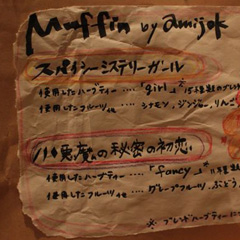 Muffin by amijok
スパイシーミステリーガール
使用したハーブティー....「girl」※15種類のブレンド
使用したフルーツ他 ... シナモン、ジンジャー、りんご
小悪魔の秘密の初恋
使用したハーブティー .....「fancy」※
使用したフルーツ他 ... グレープフルーツ、ぶどう
※ ブレンドハーブティーに